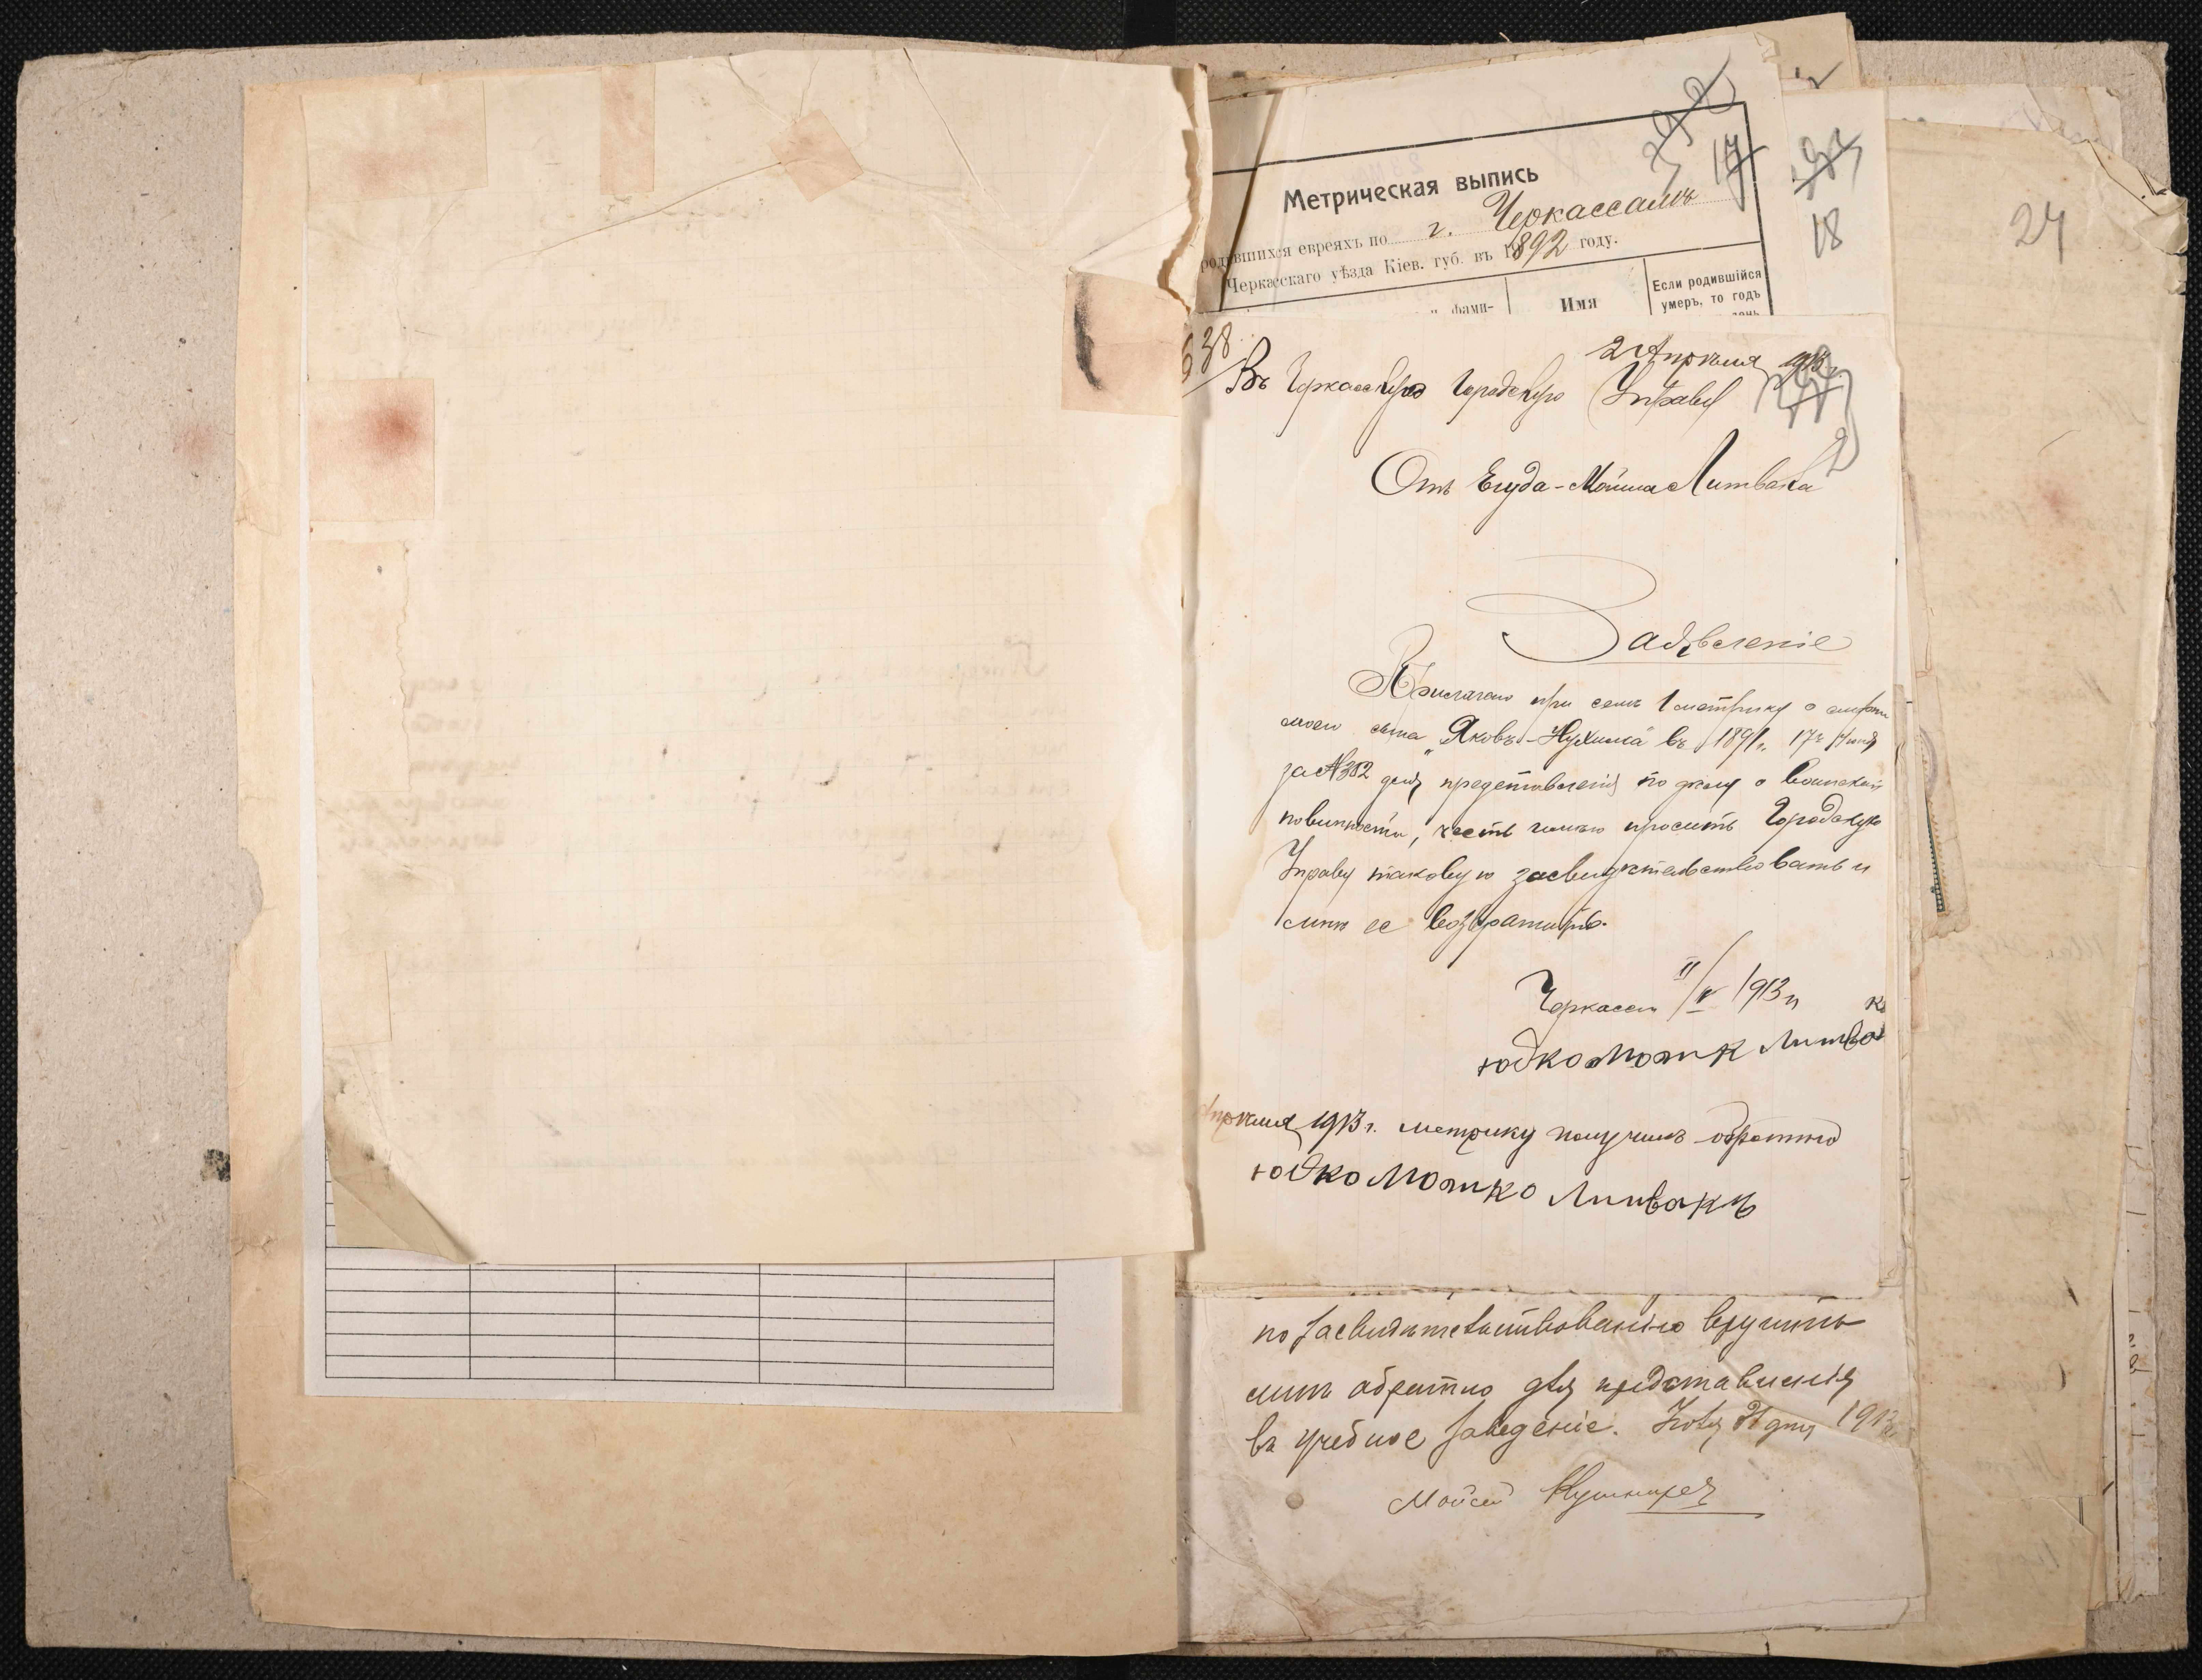 292
17
Метрическая выпись
родившихся евреяхъ по г. Черкассамъ
Черкасскаго уѣзда Кіев. губ. въ 1892 году.
фами-
Имя
Если родившійся
умеръ, то годъ
18
24
638
2 Апрѣля 1913 г.
Въ Черкасскую Городскую Управу
2
Отъ Егуда-Мойша Литвака
Заявленіе
Прилагаю при семъ 1 метрику о
моего сына „Яковъ-Нухима" въ 1891 г. 17го
за № 382 для представленія по дѣлу о воинской
повинности, честь имѣю просить Городскую
Управу таковую засвидѣтельствовать и
мнѣ ее возвратить.
Черкассы II/IV 1913 г.
Юдко Мошк Литва
Апрѣля 1913 г. метрику получилъ обратно
Юдко Мошко Литвакъ
по засвидѣтельствованію вручить
мнѣ обратно для представленія
въ учебное заведеніе. дня 1913
Мойсей Кушниръ